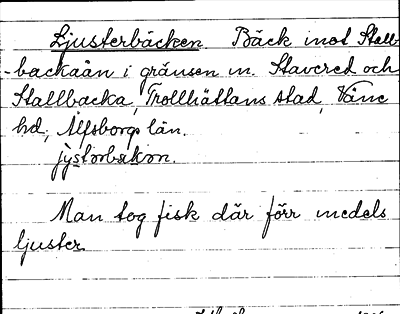 Ljusterbäcken. Bäck inot Stall-
-backaån i gränsen m. Stavered och
Stallbacka, Trollhättans stad, Väne
hd, Älfsborgs län.
jȳstərbækən.
Man tog fisk där förr medels
ljuster.